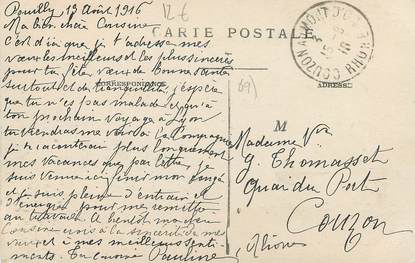 Pouilly, 13 Août 1916
12 €
Ma bien chère Cousine
C'est d'ici que je t'adresse mes
vœux les meilleurs et les plus sincères
pour ta fête, vœux de bonne santé
surtout et de tranquillité, j'espère
que tu n'es pas malade et qu'à
ton prochain voyage à Lyon
tu viendras me voir à la Compagnie
je te raconterai plus longuement
mes vacances que par lettre, je
suis venue ici finir mon congé
et je suis pleine d'entrain et
d'énergie pour me remettre
au travail. A bientôt ma chère
Cousine crois à la sincérité de mes
vœux et à mes meilleurs senti-
ments. Ta cousine Pauline
CARTE POSTALE
CORRESPONDANCE
ADRESSE
69)
COUZON-AU-MONT-D'OR
RHONE
M
Madame Vve
G. Thomasset
Quai du Port
Couzon
Rhône